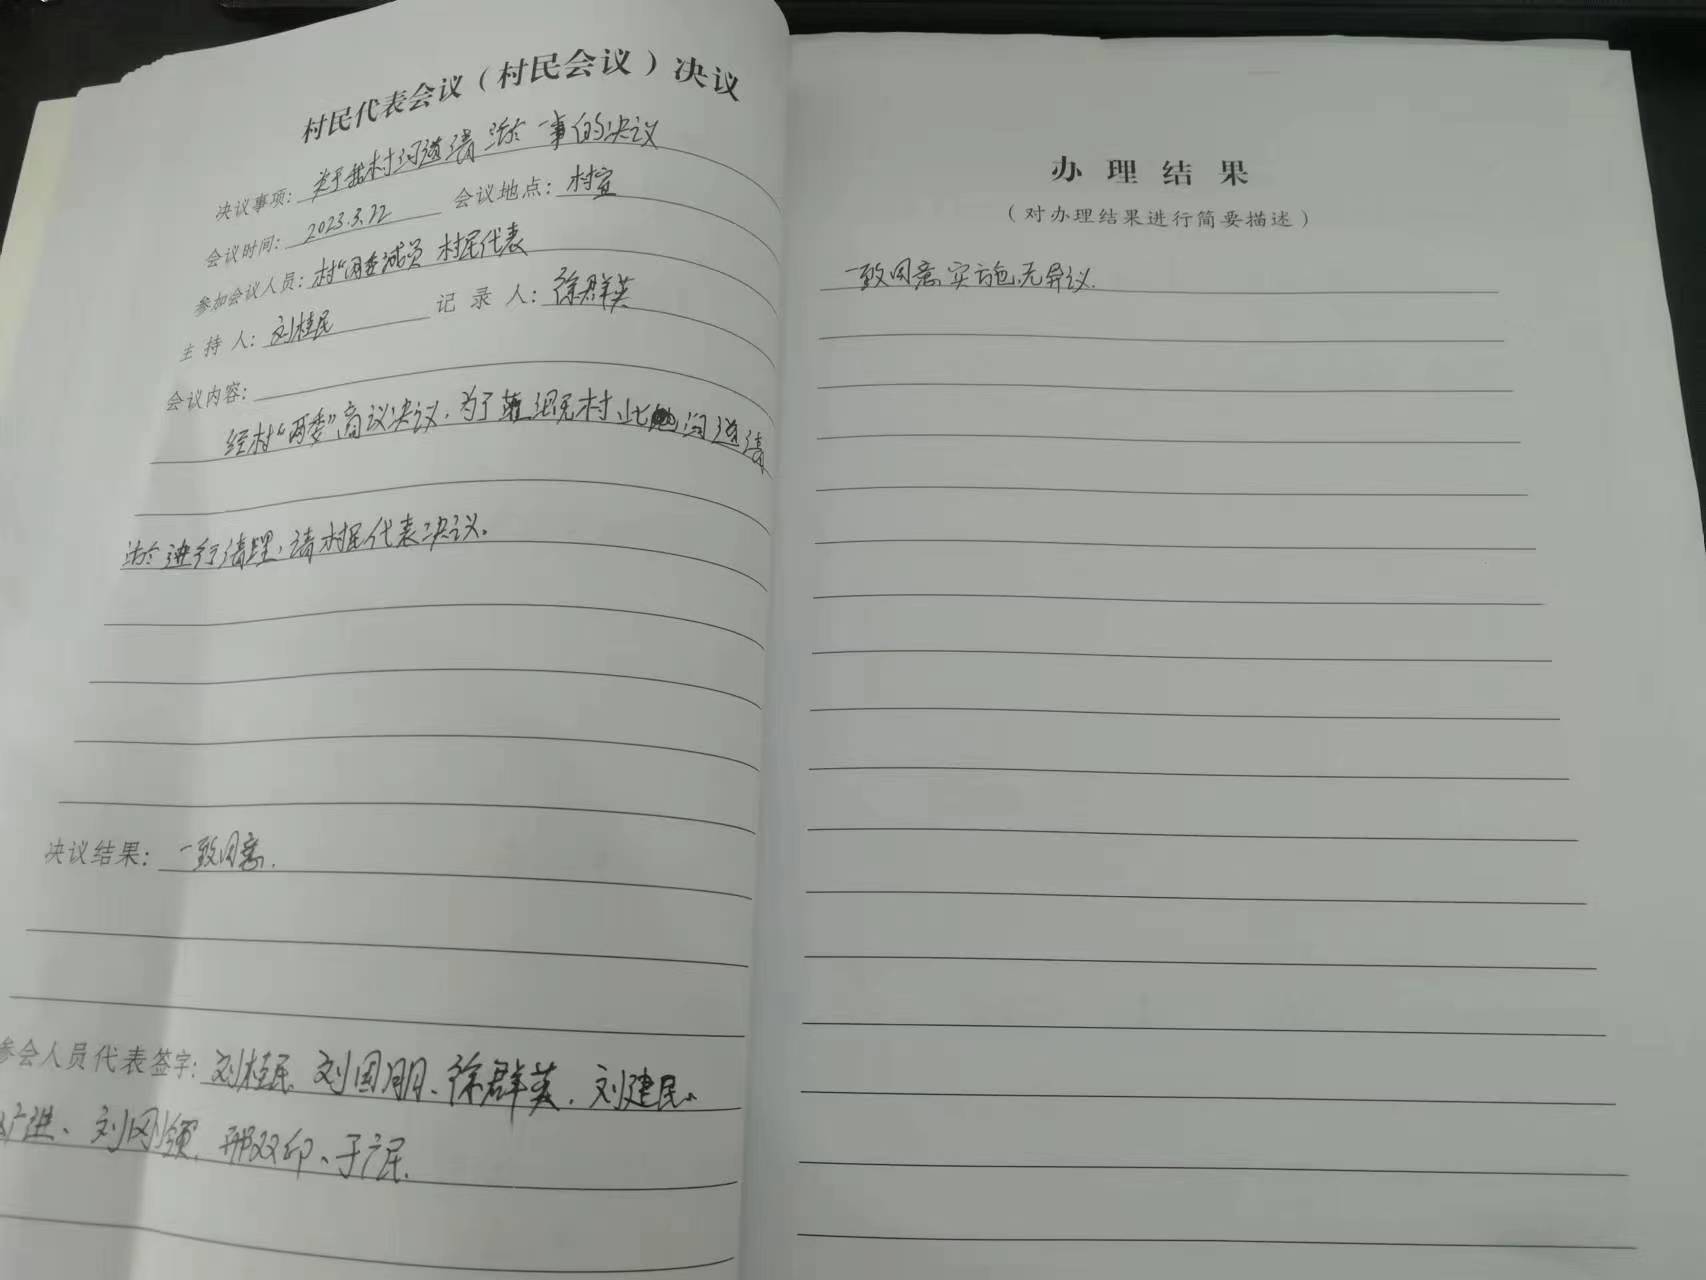 村民代表会议（村民会议）决议
决议事项：关于我村河道清淤一事的决议
会议时间：2023.3.22 会议地点：村室
参加会议人员：村“两委成员 村民代表
主持人：刘桂民 记录人：徐群英
会议内容：
经村“两委”商议决议，为了 村 河道清
淤进行清理，请村民代表决议。
决议结果：一致同意.
参会人员代表签字：刘桂民、刘国朋、徐群英、刘建民、
广进、刘刚领、邢双印、于广民.
办理结果
（对办理结果进行简要描述）
一致同意实施，无异议.